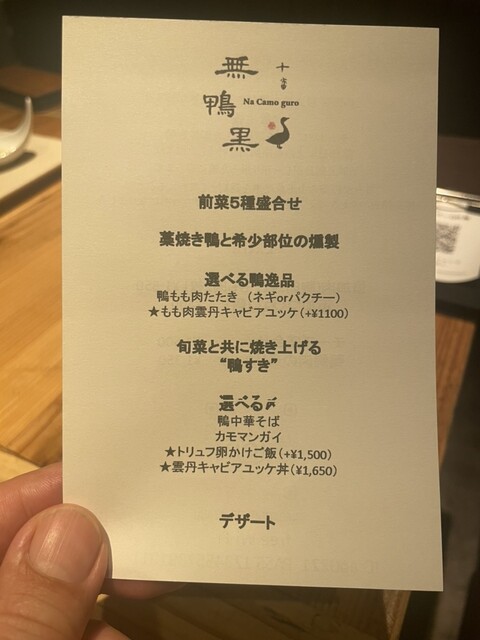 無
鴨
黒
十番
Na Camo guro
前菜5種盛合せ
藁焼き鴨と希少部位の燻製
選べる鴨逸品
鴨もも肉たたき （ネギorパクチー）
★もも肉雲丹キャビアユッケ（+¥1100）
旬菜と共に焼き上げる
“鴨すき”
選べる〆
鴨中華そば
カモマンガイ
★トリュフ卵かけご飯（+¥1,500）
★雲丹キャビアユッケ丼（¥1,650）
デザート